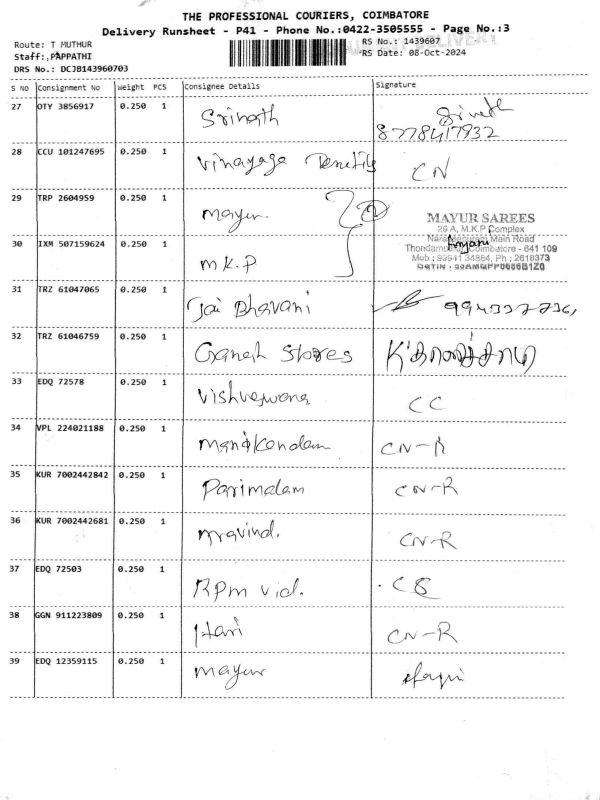 THE PROFESSIONAL COURIERS, COIMBATORE
Delivery Runsheet - P41 - Phone No.:0422-3505555 - Page No.:3
Route: T MUTHUR
RS No.: 1439607
Staff:,PAPPATHI
RS Date: 08-Oct-2024
DRS No.: DCJB143960703
S No Consignment No Weight PCS Consignee Details Signature
27 OTY 3856917 0.250 1 Srinath
8778417932
28 CCU 101247695 0.250 1 Vinayaga CN
29 TRP 2604959 0.250 1 mayur
MAYUR SAREES
29 A, M.K.P Complex
Main Road
30 IXM 507159624 0.250 1 M.K.P
Coimbatore - 641 109
31 TRZ 61047065 0.250 1 Jai Bhavani
32 TRZ 61046759 0.250 1 Ganesh Stores
33 EDQ 72578 0.250 1 CC
34 VPL 224021188 0.250 1 Manikandam CN-R
35 KUR 7002442842 0.250 1 Parimalam CN-R
36 KUR 7002442681 0.250 1 Aravind. CN-R
37 EDQ 72503 0.250 1 Rpm vid.
38 GGN 911223809 0.250 1 Hari CN-R
39 EDQ 12359115 0.250 1 mayur